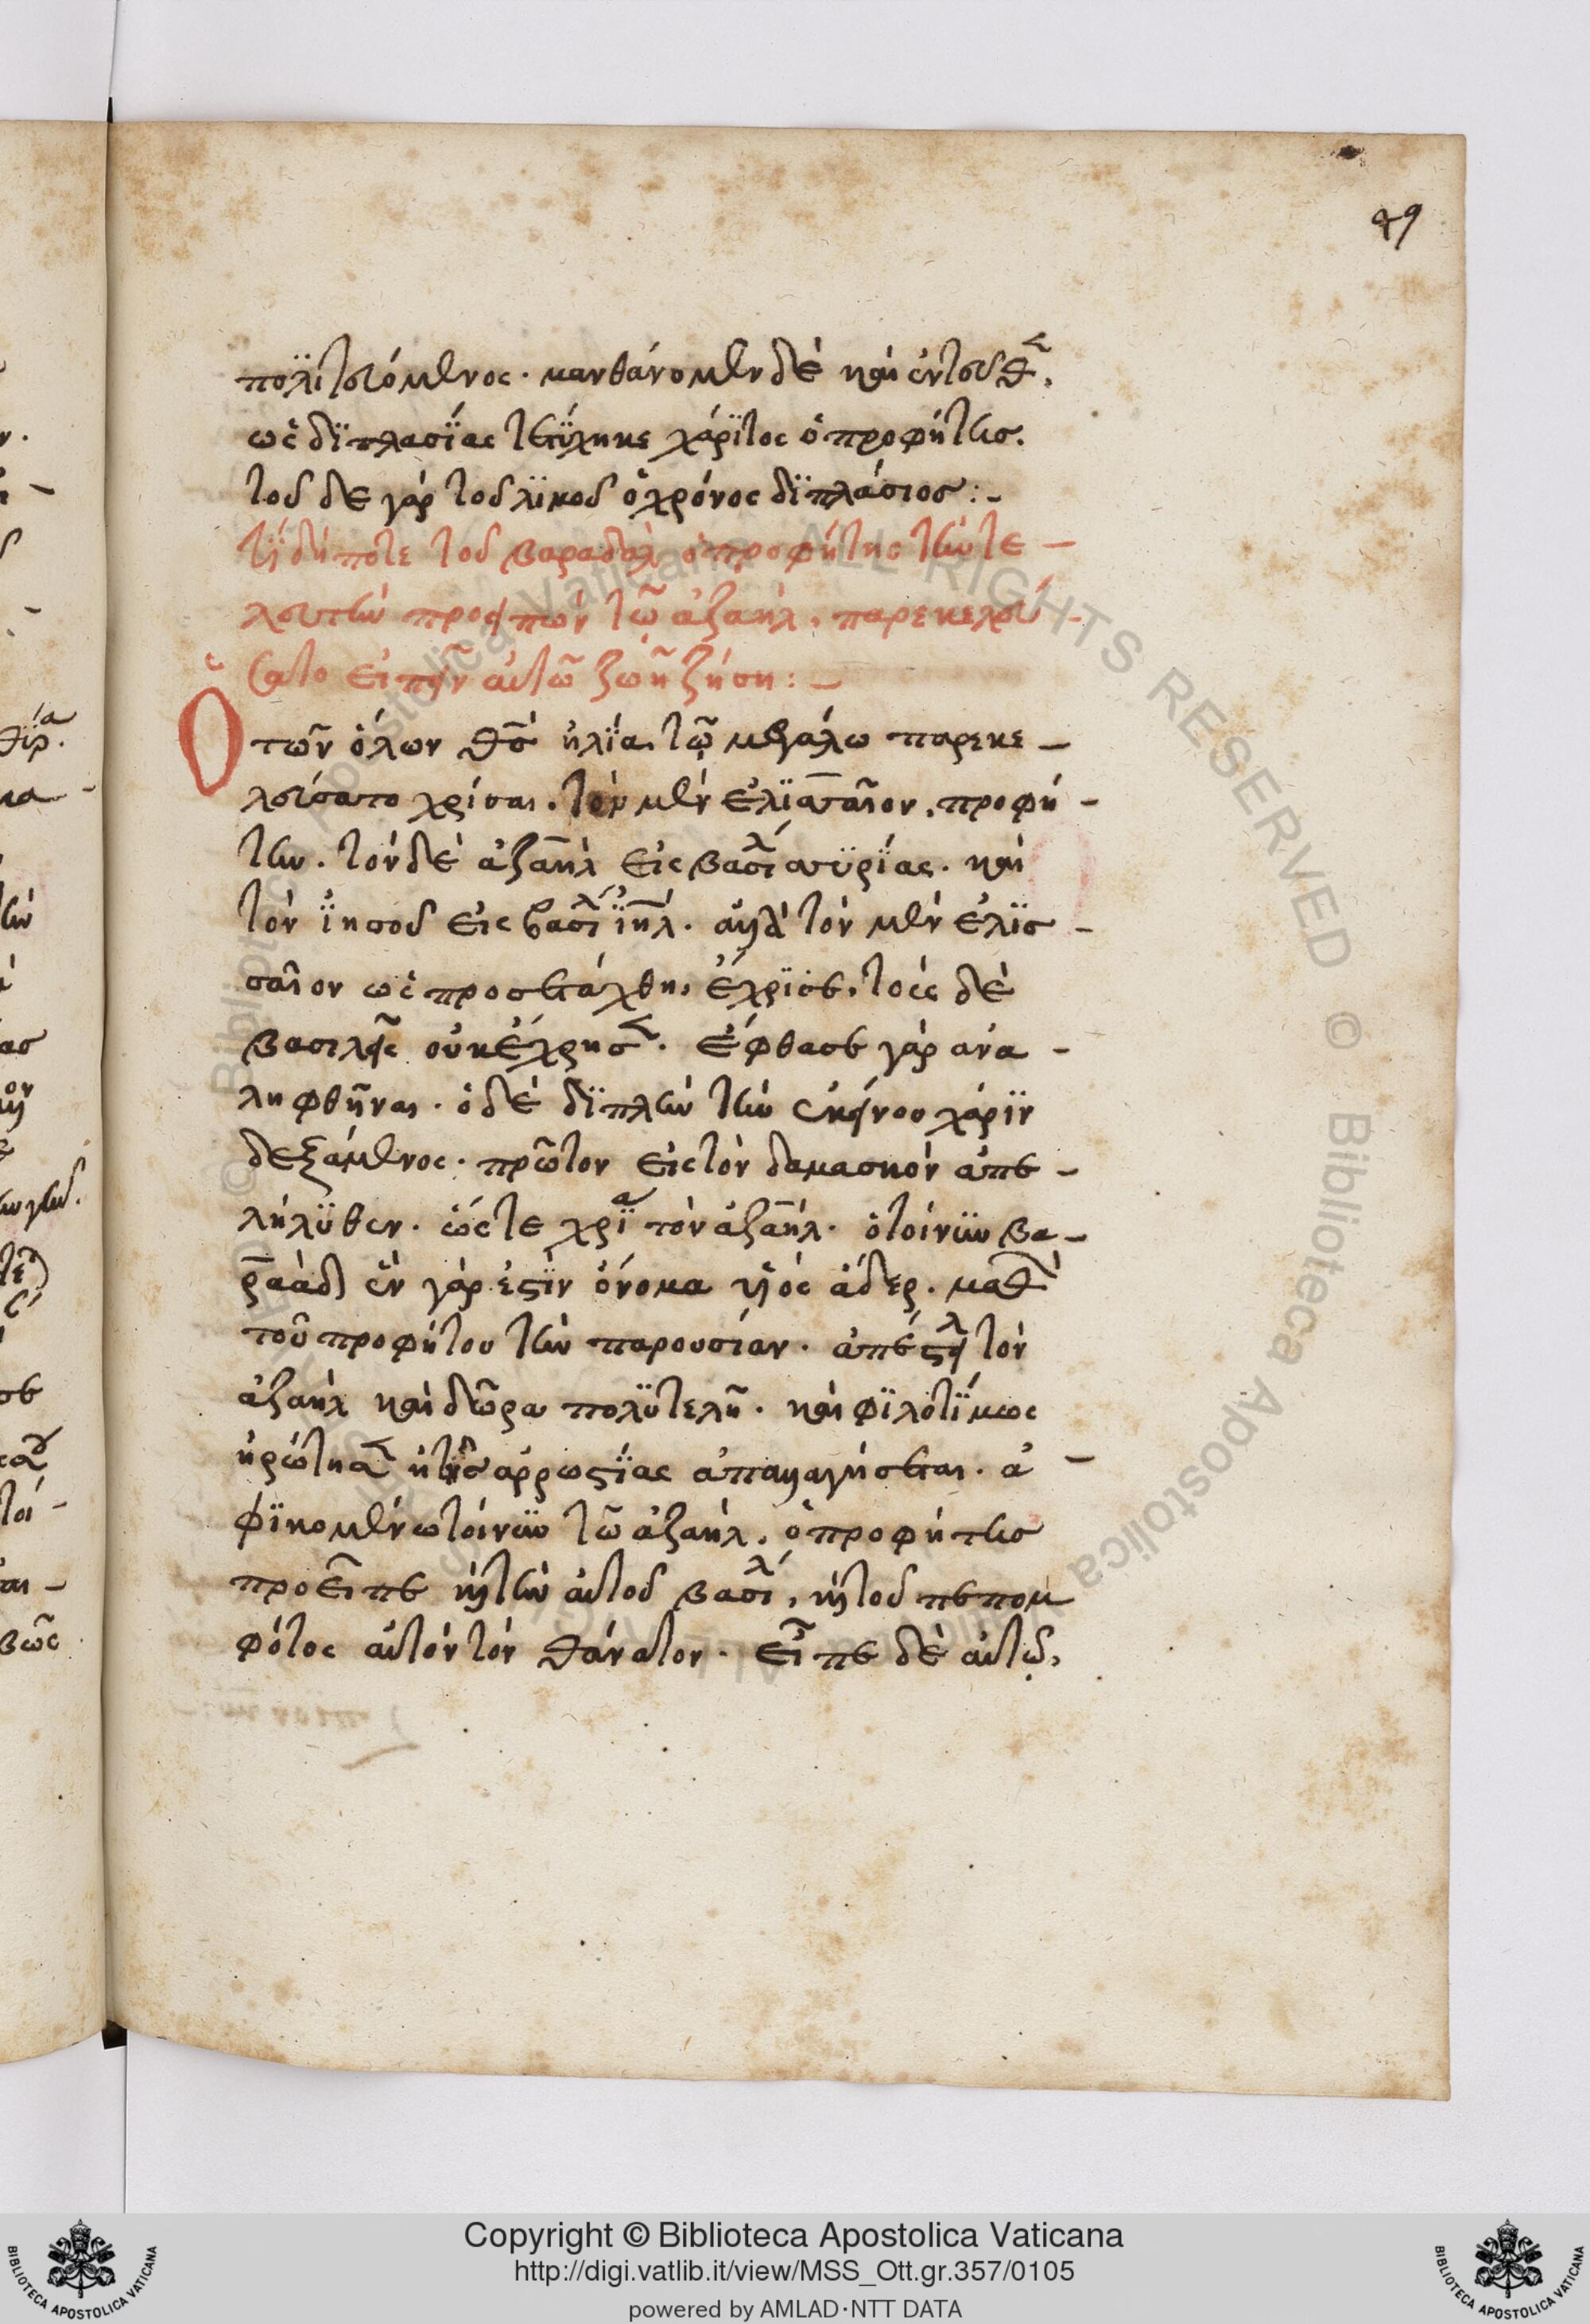 99
πολϊτευόμενος. μανθάνομεν δὲ καὶ ἐντεῦθ(εν),
ὡς δϊπλασΐας τετύχηκε χάρϊτος ὁ προφήτης.
τοῦδε γάρ τοῦ λϊκοῦ ὁ χρόνος διπλάσιος:-
τΐ δή ποτε τοῦ βαραδὰλ ὁ προφήτης τὴν τε-
λευτὴν προειπών τῶ ἀζαὴλ, παρεκελεύ-
σατο εἰπεῖν αὐτῶ ζωῆ ζήση:-
Ὁ τῶν ὅλων θς ἡλΐα τῷ μεγάλω παρεκε-
λεύσατο χρίσαι. τὸν μὲν ἐλϊσσαῖον, προφή-
την. τὸν δὲ ἀζαὴλ εἰς βασιλ συρΐας. καὶ
τὸν ϊησοῦ εἰς βασιλ ϊηλ. ἀλλὰ τὸν μὲν ἐλϊσ-
σαῖον ὡς προσετάχθη, ἔχρϊσε, τοὺς δὲ
βασιλεῖς οὐκ ἔχρησεν. ἔφθασε γὰρ ἀνα-
ληφθῆναι. ὁ δὲ δϊπλὴν τὴν ἐκείνου χάρϊν
δεξάμενος. πρῶτον εἰς τὸν δαμασκὸν ἀπε-
λήλϋθεν. ὥστε χρΐσα τὸν ἀζαὴλ. ὁ τοίνϋν βα-
ραὰδ ἓν γάρ ἐστϊν ὄνομα υἱὸς ἄδερ. μαθὼν
τοῦ προφήτου τὴν παρουσίαν. ἀπέστειλε τὸν
ἀζαὴλ καὶ δῶρα πολϋτελῆ. καὶ φϊλοτΐμως
ἠρώτησεν εἰ τῆς ἀρρωστΐας ἀπαλλαγήσεται. ἀ-
φϊκομένω τοίνϋν τῶ ἀζαὴλ, ὁ προφήτης
προεῖπε καὶ τὴν αὐτοῦ βασιλ, καὶ τοῦ πεπομ
φότος αὐτόν τὸν θάνατον. εἶπε δὲ αὐτῷ,
Copyright © Biblioteca Apostolica Vaticana
http://digi.vatlib.it/view/MSS_Ott.gr.357/0105
powered by AMLAD·NTT DATA
BIBLIOTECA APOSTOLICA VATICANA
BIBLIOTECA APOSTOLICA VATICANA